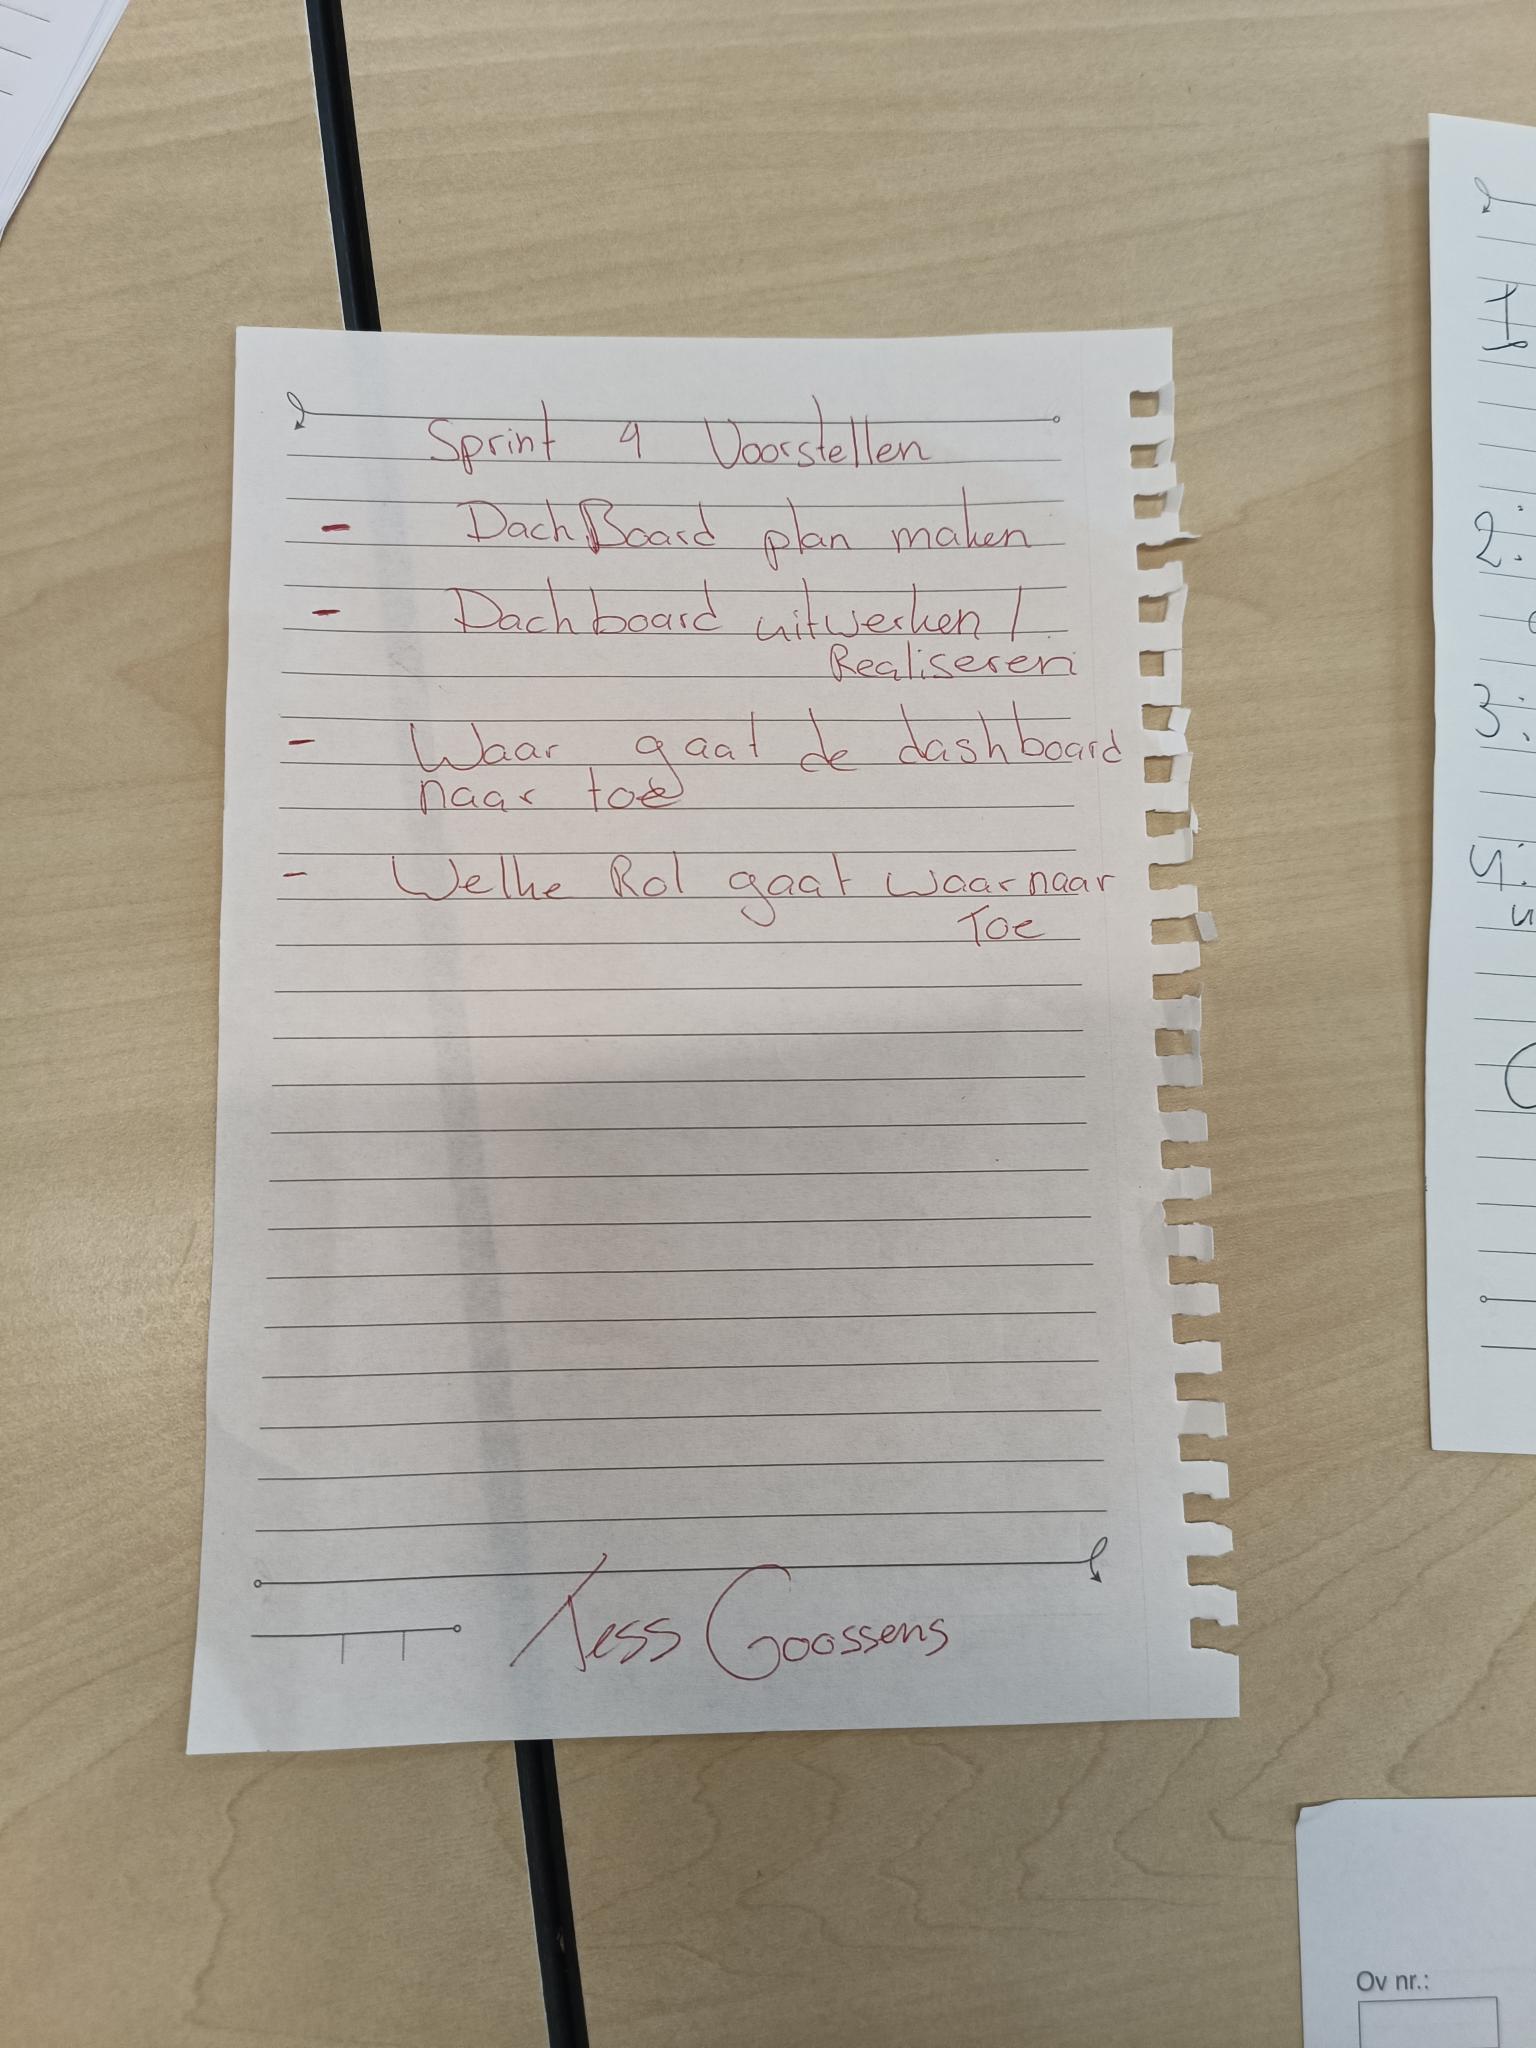 Sprint 4 Voorstellen
- DachBoard plan maken
- Dachboard uitwerken /
Realiseren
- Waar gaat de dashboard
naar toe
- Welke Rol gaat waar naar
Toe
Tess Goossens
2.
3.
Ov nr.: